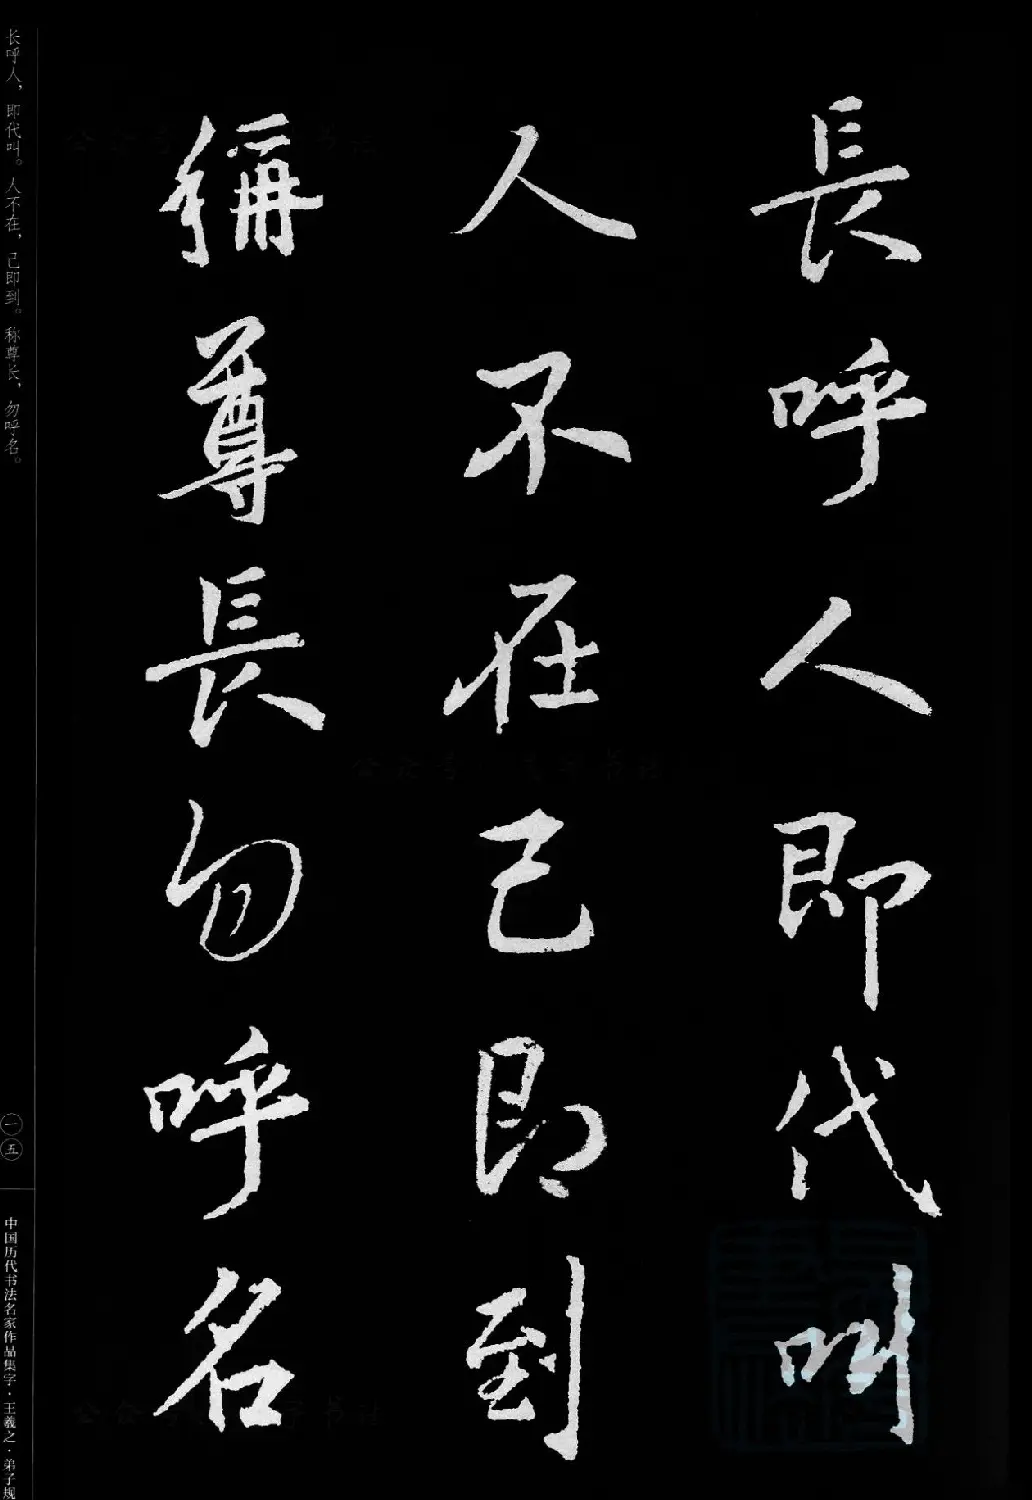 長呼人即代叫
人不在己即到
稱尊長勿呼名
长呼人，即代叫。人不在，己即到。称尊长，勿呼名。
一五
中国历代书法名家作品集字·王羲之·弟子规